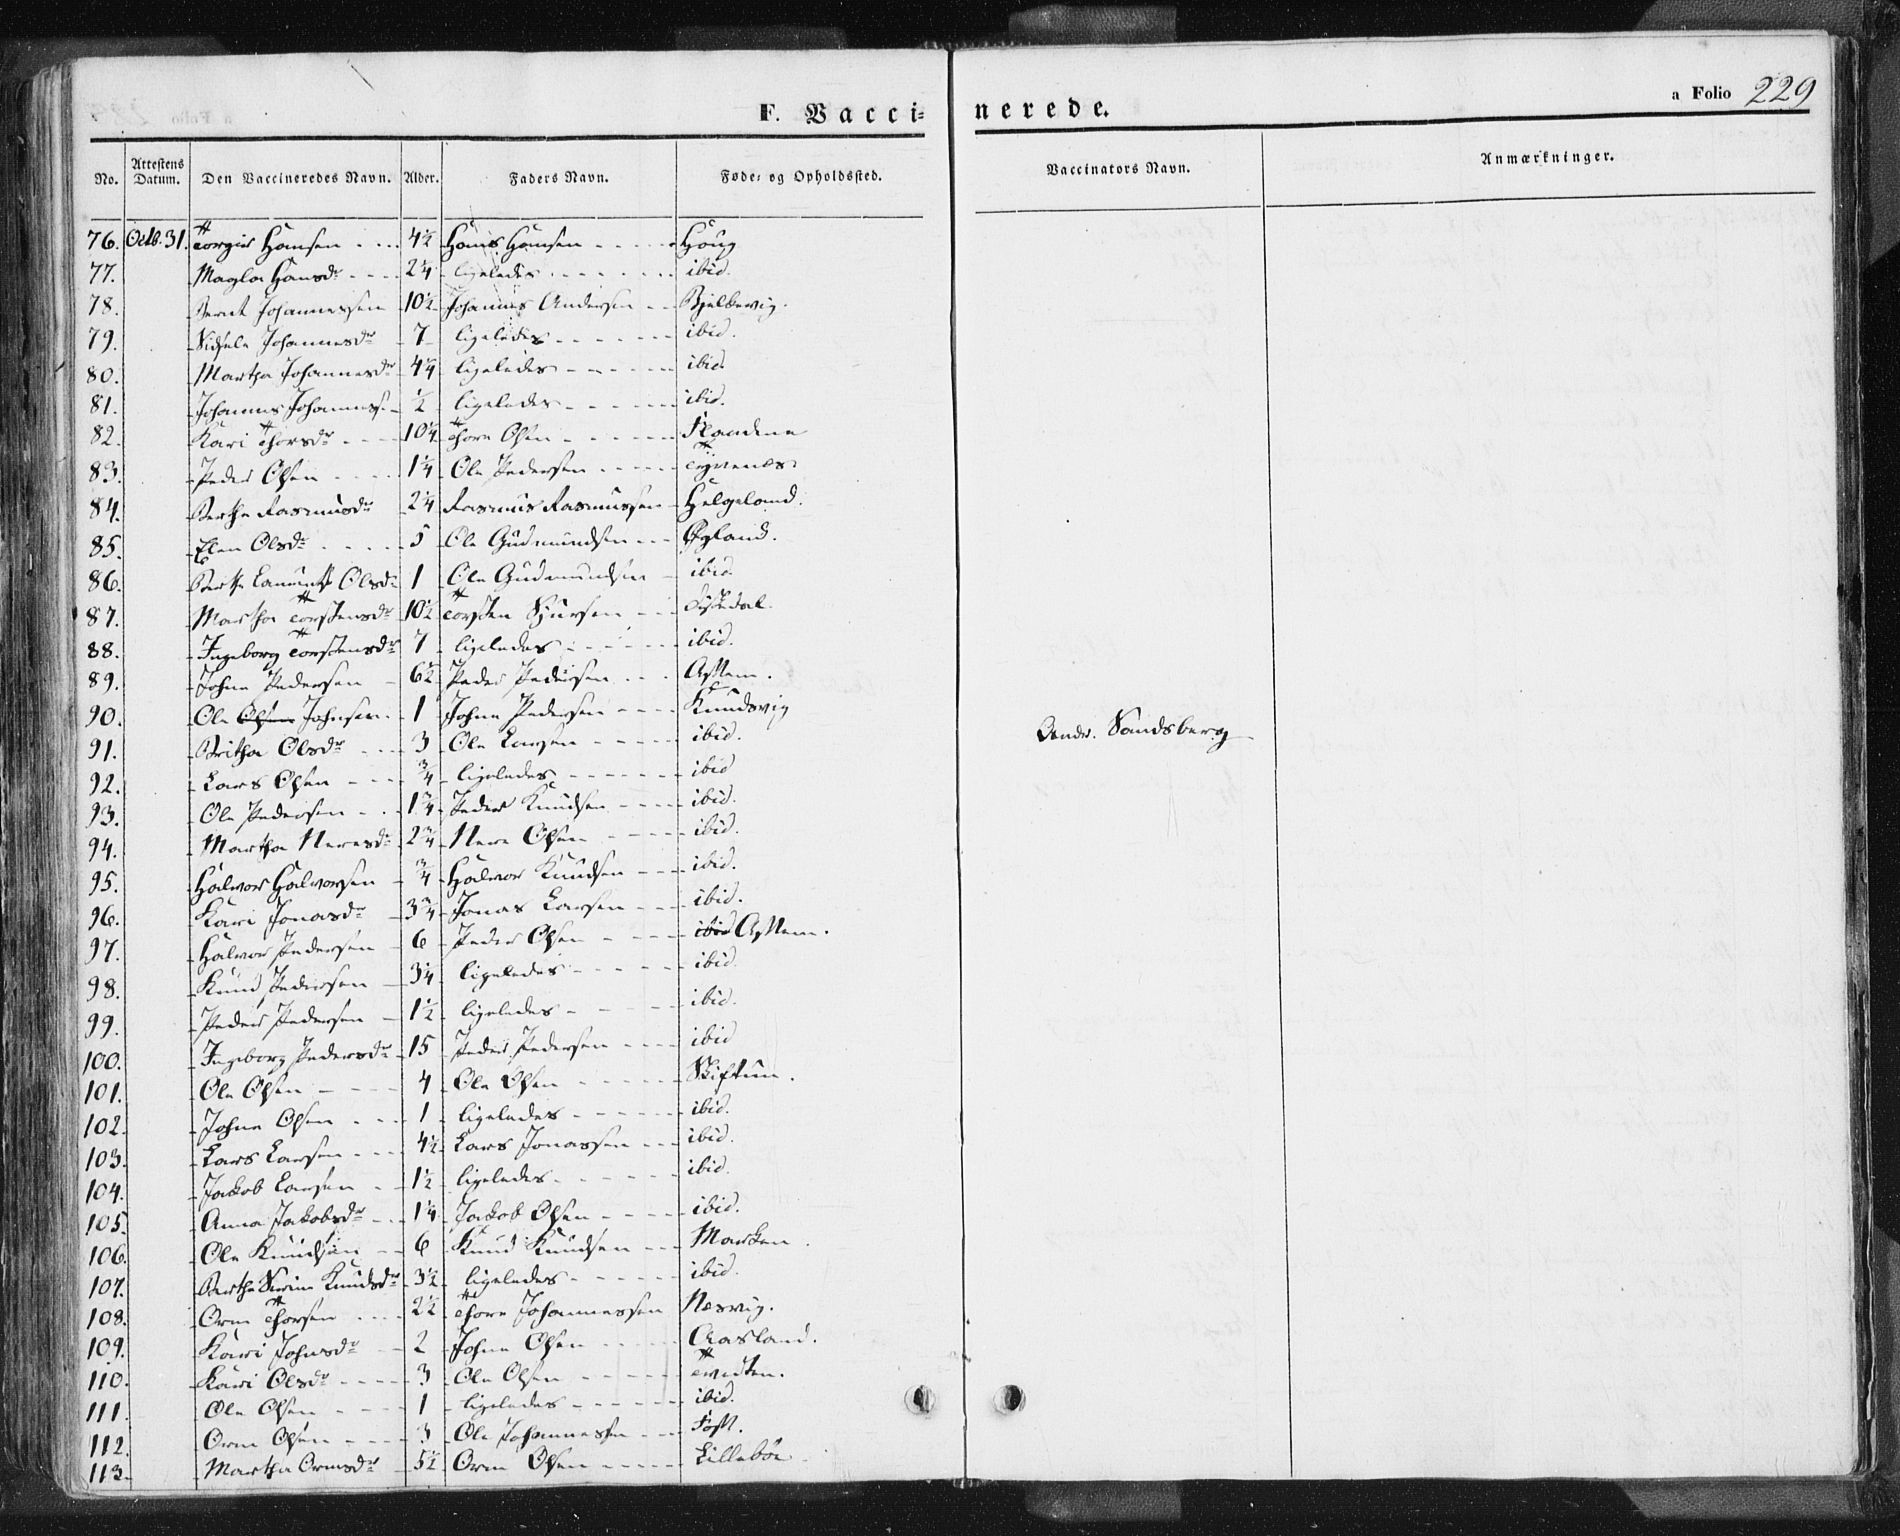 a Folio 229
F. Vacci- nerede.
No. Attestens Datum. Den Vaccineredes Navn. Alder. Faders Navn. Føde- og Opholdssted. Vaccinators Navn. Anmærkninger.
76. Octb. 31. Torger Hansen 4½ Hans Hansen Houg
77. Magla Hansdr 2¼ ligeledes ibid.
78. Bernt Johannessen 10½ Johannes Andersen
79. Sidsele Johannesdr 7 ligeledes ibid.
80. Martha Johannesdr 4¼ ligeledes ibid.
81. Johannes Johanness. ½ ligeledes ibid.
82. Kari Thorsdr 10¼ Thore Olsen
83. Peder Olsen 1¼ Ole Pedersen
84. Berthe Rasmusdr 2¼ Rasmus Rasmussen Helgeland.
85. Elen Olsdr 5 Ole Gudmundsen Øgland.
86. Berthe Olsdr 1 Ole Gudmundsen ibid.
87. Martha Torstensdr 10½ Torsten Sjursen
88. Ingeborg Torstensdr 7 ligeledes ibid.
89. Johne Pedersen 6½ Peder Pedersen
90. Ole Olsen Johnsen. 1 Johne Pedersen Knudsvig
91. Britha Olsdr 3 Ole Larsen ibid.
Andr. Sandsberg
92. Lars Olsen ¾ ligeledes ibid
93. Ole Pedersen 1¾ Peder Knudsen ibid.
94. Martha Neresdr 2¾ Nere Olsen ibid.
95. Halvor Halvorsen ¾ Halvor Knudsen ibid.
96. Kari Jonasdr 3¾ Jonas Larsen ibid.
97. Halvor Pedersen 6 Peder Olsen ibid
98. Knud Pedersen 3¼ ligeledes ibid.
99. Peder Pedersen 1½ ligeledes ibid.
100. Ingeborg Pedersdr 15 Peder Pedersen ibid
101. Ole Olsen 4 Ole Olsen Skiftun.
102. Johne Olsen 1 ligeledes ibid.
103. Lars Larsen 4½ Lars Jonassen ibid.
104. Jakob Larsen 1½ ligeledes ibid.
105. Anna Jakobsdr 1¼ Jakob Olsen ibid.
106. Ole Knudsen 6 Knud Knudsen Marken
107. Berthe Serine Knudsdr 3½ ligeledes ibid.
108. Orm Thorsen 2½ Thore Johannessen Nesvig.
109. Kari Johnsdr 2 Johne Olsen Aasland.
110. Kari Olsdr 3 Ole Olsen Tvedten.
111. Ole Olsen 1 ligeledes ibid.
112. Orm Olsen 3 Ole Johannessen
113. Martha Ormsdr 5½ Orm Olsen Lillebøe